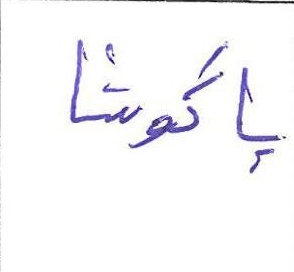 پاکوشا